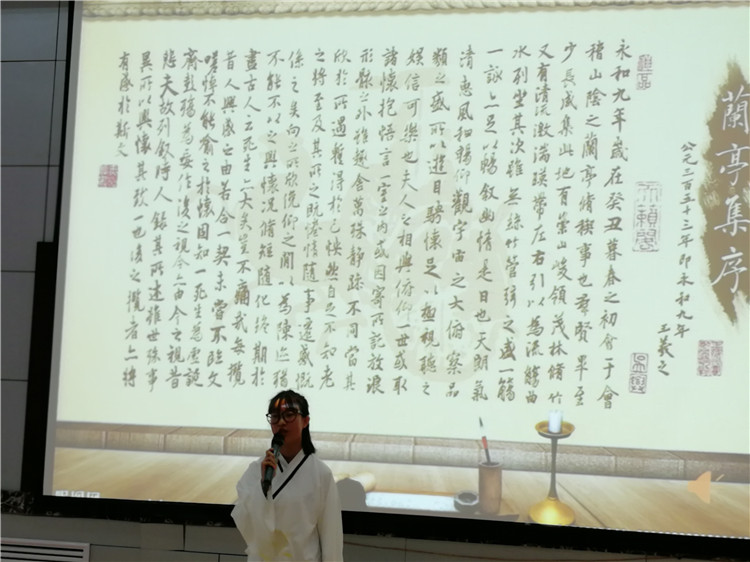 蘭亭集序
公元三百五十三年即永和九年
王羲之
永和九年歲在癸丑暮春之初會于會
稽山陰之蘭亭脩稧事也羣賢畢至
少長咸集此地有崇山峻領茂林脩竹
又有清流激湍暎帶左右引以為流觴曲
水列坐其次雖無絲竹管弦之盛一觴
一詠亦足以暢叙幽情是日也天朗氣
清惠風和暢仰觀宇宙之大俯察品
類之盛所以遊目騁懷足以極視聽之
娛信可樂也夫人之相與俯仰一世或取
諸懷抱悟言一室之內或因寄所託放浪
形骸之外雖趣舍萬殊靜躁不同當其
欣於所遇蹔得於己怏然自足不知老
之將至及其所之既惓情隨事遷感慨
係之矣向之所欣俛仰之閒以為陳迹猶
不能不以之興懷況脩短隨化終期於
盡古人云死生亦大矣豈不痛哉每攬
昔人興感之由若合一契未嘗不臨文
嗟悼不能喻之於懷固知一死生為虛誕
齊彭殤為妄作後之視今亦由今之視昔
悲夫故列叙時人錄其所述雖世殊事
異所以興懷其致一也後之攬者亦將
有感於斯文